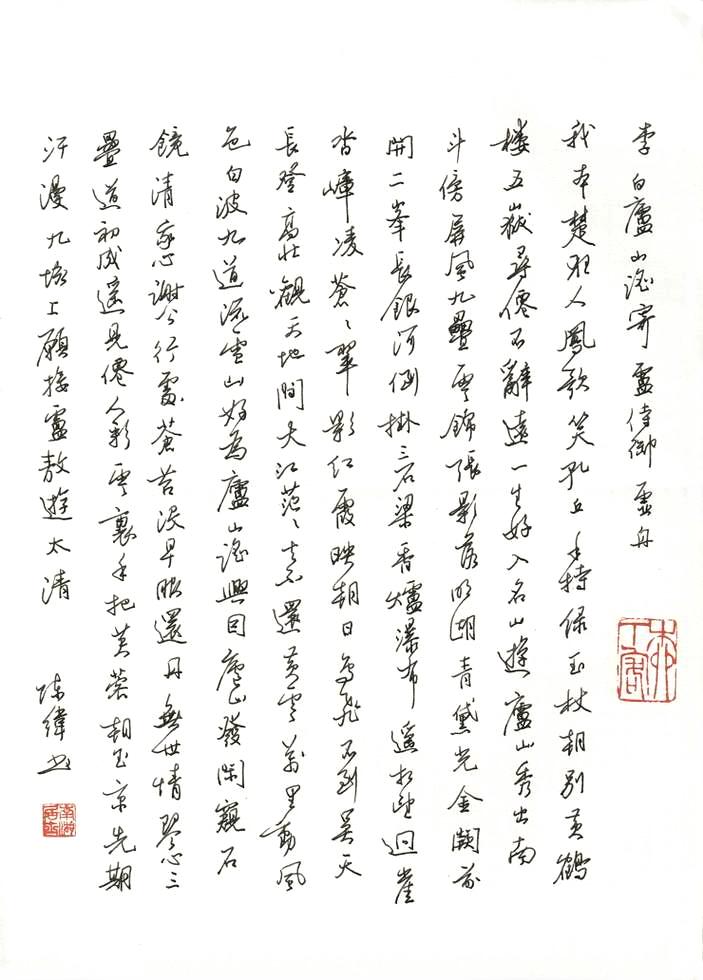 李白廬山謠寄盧侍御虛舟
我本楚狂人鳳歌笑孔丘手持綠玉杖朝別黃鶴
樓五嶽尋僊不辭遠一生好入名山遊廬山秀出南
斗傍屏風九疊雲錦張影落明湖青黛光金闕前
開二峯長銀河倒掛三石梁香爐瀑布遥相望迴崖
沓嶂凌蒼蒼翠影紅霞映朝日鳥飛不到吳天
長登高壯觀天地間大江茫茫去不還黃雲萬里動風
色白波九道流雪山好為廬山謠興因廬山發閑窺石
鏡清我心謝公行處蒼苔沒早服還丹無世情琴心三
疊道初成遥見僊人彩雲裏手把芙蓉朝玉京先期
汗漫九垓上願接盧敖遊太清
陳緯書